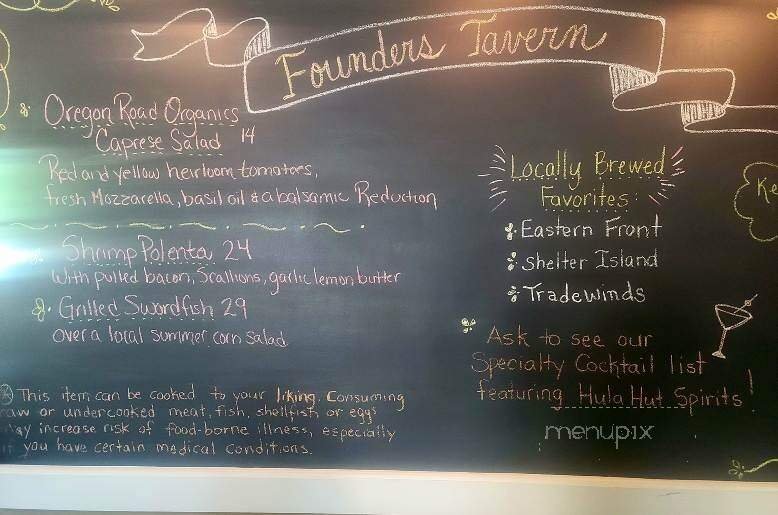 Founders Tavern
Oregon Road Organics
Caprese Salad 14
Red and yellow heirloom tomatoes,
fresh Mozzarella, basil oil & a balsamic Reduction
Shrimp Polenta 24
With pulled bacon, Scallions, garlic lemon butter
Grilled Swordfish 29
over a local summer corn salad
This item can be cooked to your liking. Consuming
raw or undercooked meat, fish, shellfish or eggs
may increase risk of food-borne illness, especially
if you have certain medical conditions.
Locally Brewed
Favorites:
Eastern Front
Shelter Island
Tradewinds
Ask to see our
Specialty Cocktail list
featuring Hula Hut Spirits!
Ke
menupix